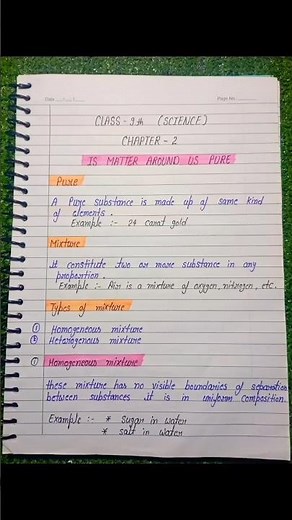 Date
Page No.
CLASS - 9th (SCIENCE)
CHAPTER - 2
IS MATTER AROUND US PURE
Pure
A Pure substance is made up of same kind
of elements.
Example :- 24 carat gold
Mixture
It constitute two or more substance in any
proportion.
Example :- Air is a mixture of oxygen, nitrogen, etc.
Types of mixture
① Homogeneous mixture
② Heterogenous mixture
① Homogeneous mixture
these mixture has no visible boundaries of separation
between substances .It is in uniform composition.
Example :- * Sugar in water
* salt in water